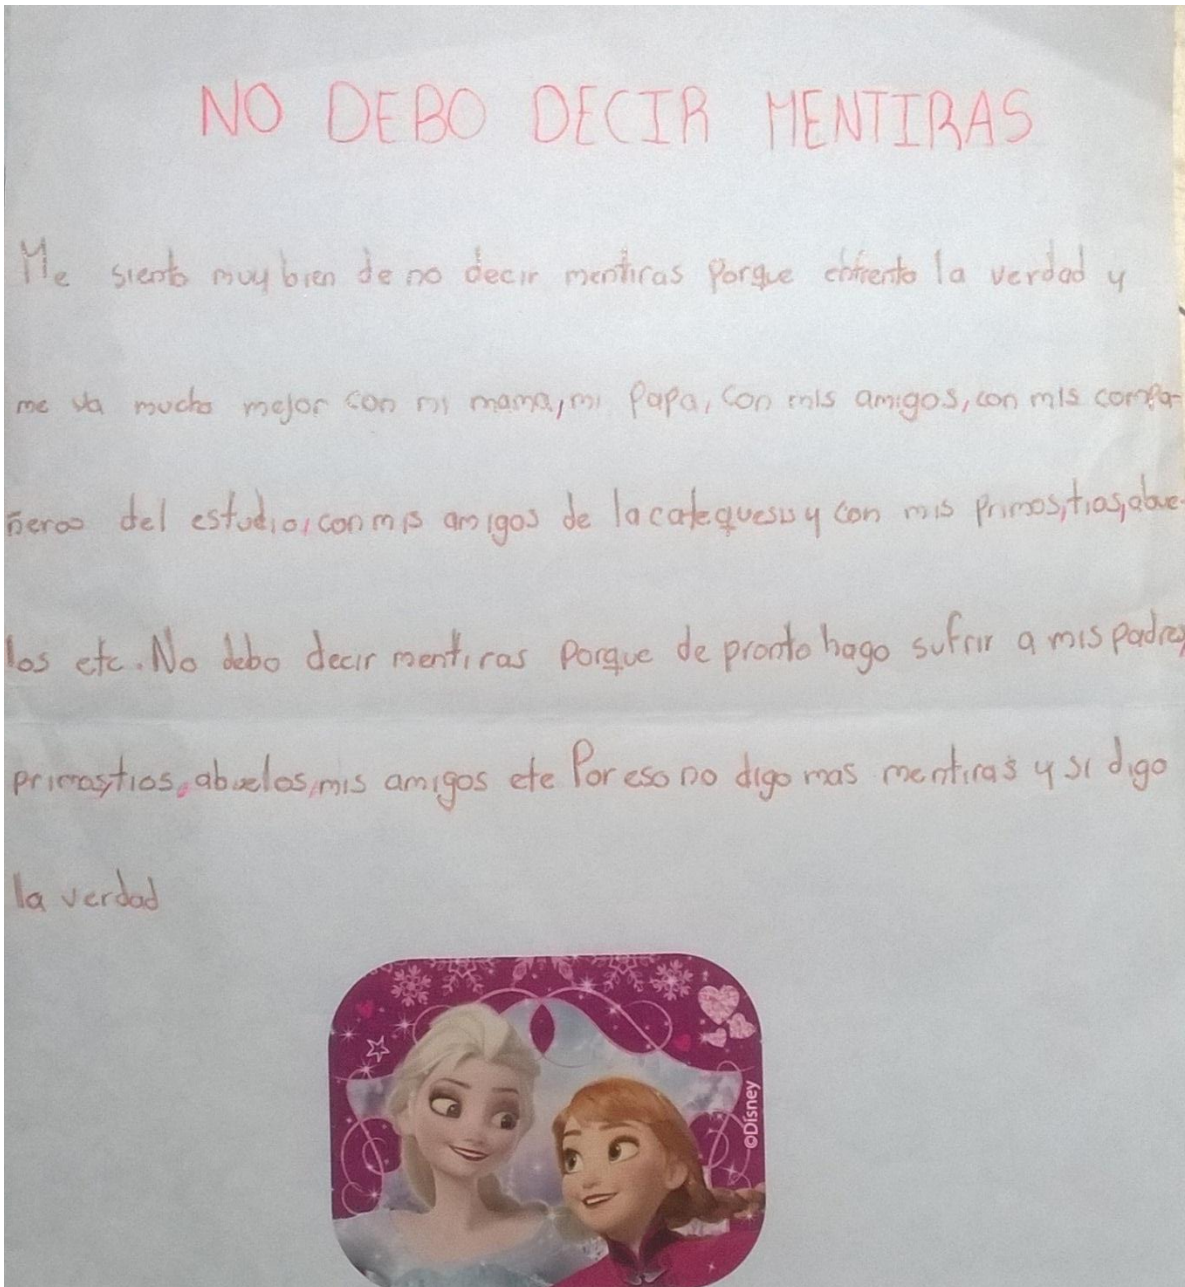 NO DEBO DECIR MENTIRAS
Me siento muy bien de no decir mentiras porque la verdad y
me va mucho mejor con mi mama, mi papa, con mis amigos, con mis compa-
ñeros del estudio, con mis amigos de la catequesis y con mis primos, tios, abue-
los etc. No debo decir mentiras porque de pronto hago sufrir a mis padres,
primos, tios, abuelos, mis amigos etc Por eso no digo mas mentiras y si digo
la verdad
©Disney